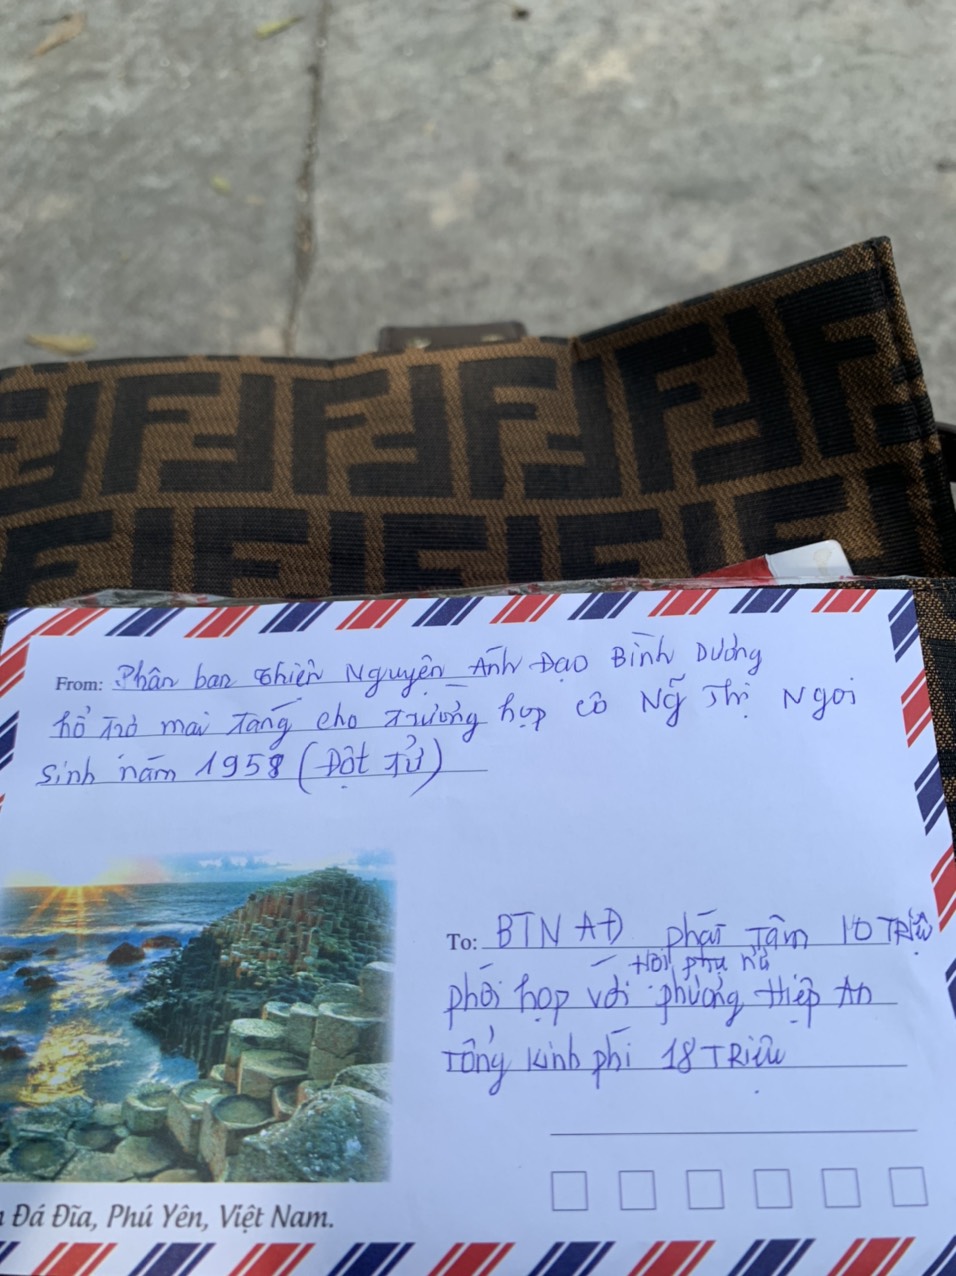 From: Phân ban Thiện Nguyện Ánh Đạo Bình Dương
hổ trợ mai táng cho trường hợp cô Ng̃ Thị Ngoi
sinh năm 1958 (Đột Tử)
To: BTN AĐ phát Tâm 10 TRiệu
Hội phụ nữ
phối hợp với phường Hiệp An
Tổng kinh phí 18 TRiệu
Đá Đĩa, Phú Yên, Việt Nam.